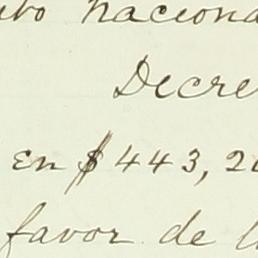 nacion
Decre
En $443,2
favor de l